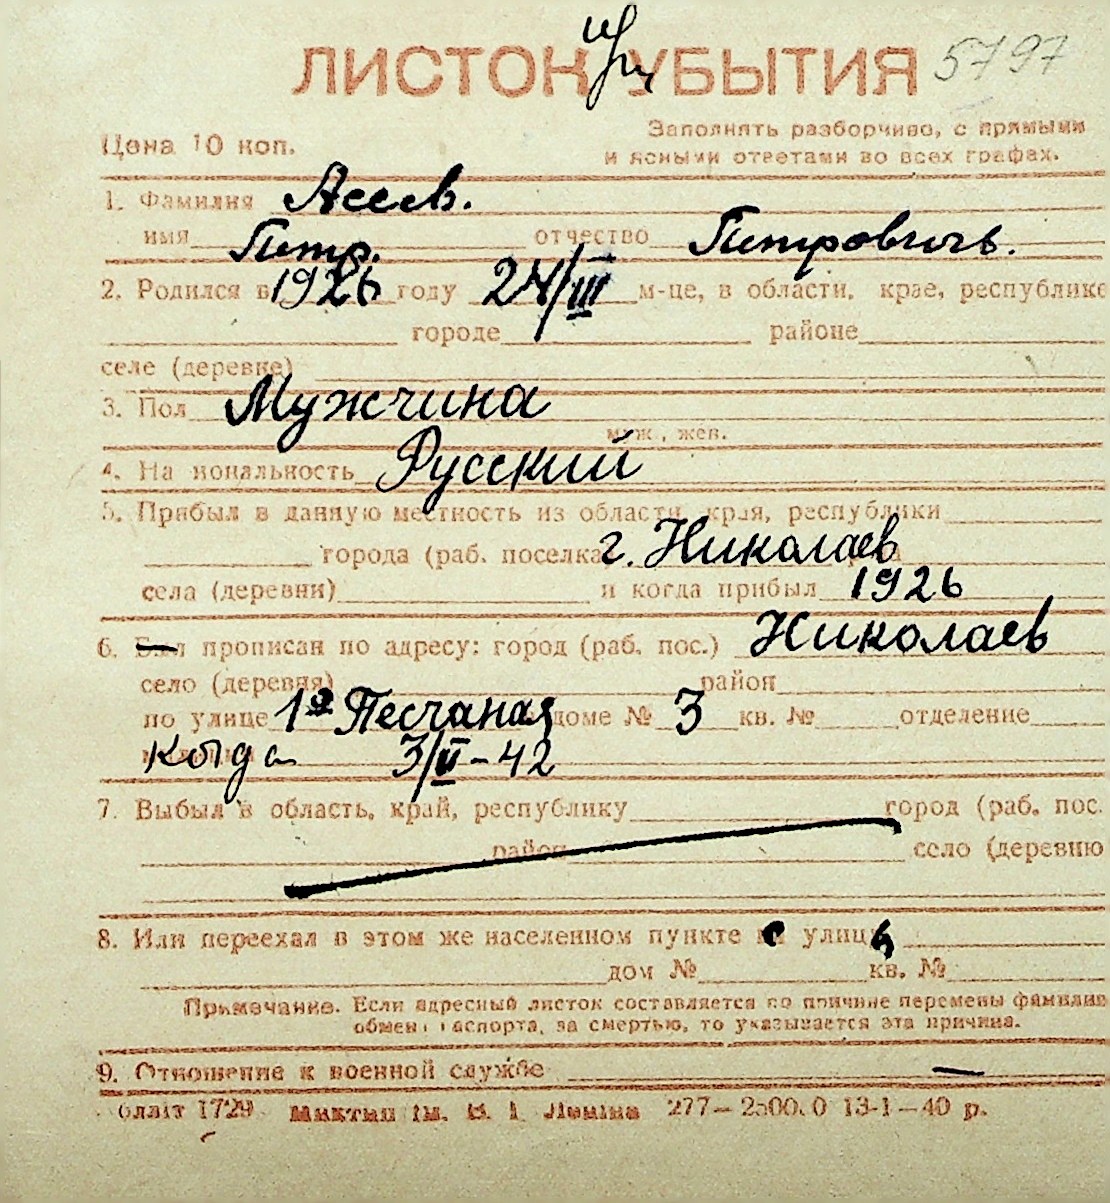 ЛИСТОК при УБЫТИЯ 5797
Цена 10 коп.
Заполнять разборчиво, с прямыми
и ясными ответами во всех графах.
1. Фамилия Асеев.
имя Петр. отчество Петрович.
2. Родился в 1926 году 24/III м-це, в области, крае, республике
городе районе
селе (деревне)
3. Пол Мужчина
муж., жен.
4. Национальность Русский
5. Прибыл в данную местность из области, края, республики
города (раб. поселка г. Николаев
села (деревни) и когда прибыл 1926
6. Был прописан по адресу: город (раб. пос.) Николаев
село (деревня) район
по улице 1я Песчаная доме № 3 кв. № отделение
Когда 3/II-42
7. Выбыл в область, край, республику город (раб. пос.
район село (деревню
8. Или переехал в этом же населенном пункте с улицы
дом № кв. №
Примечание. Если адресный листок составляется по причине перемены фамилии
обмена паспорта, за смертью, то указывается эта причина.
9. Отношение к военной службе —
1729 им. В. І. Леніна 277—2500.0 13-1—40 р.